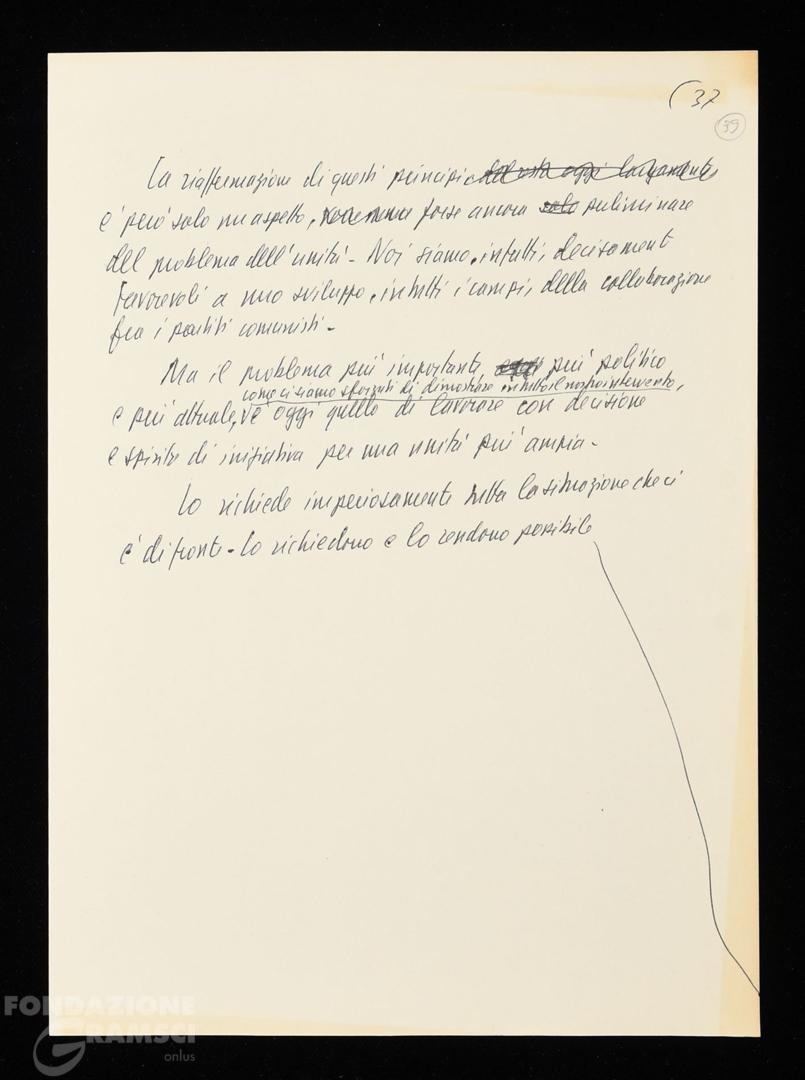 (37
39
La riaffermazione di questi principi
è però solo un aspetto, forse ancora solo preliminare
del problema dell'unità - Noi siamo, infatti, decisamente
favorevoli a uno sviluppo, in tutti i campi, della collaborazione
fra i partiti comunisti -
Ma il problema più importante, più politico
come ci siamo sforzati di dimostrare in tutto il nostro intervento,
e più attuale, è oggi quello di lavorare con decisione
e spirito di iniziativa per una unità più ampia -
Lo richiede imperiosamente tutta la situazione che ci
è di fronte - Lo richiedono e lo rendono possibile
FONDAZIONE
GRAMSCI
onlus